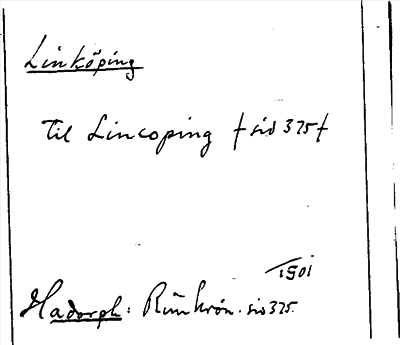 Linköping
til Lincoping † sid 375 †
1901
Hadorph: Rimkrön. sid 375.